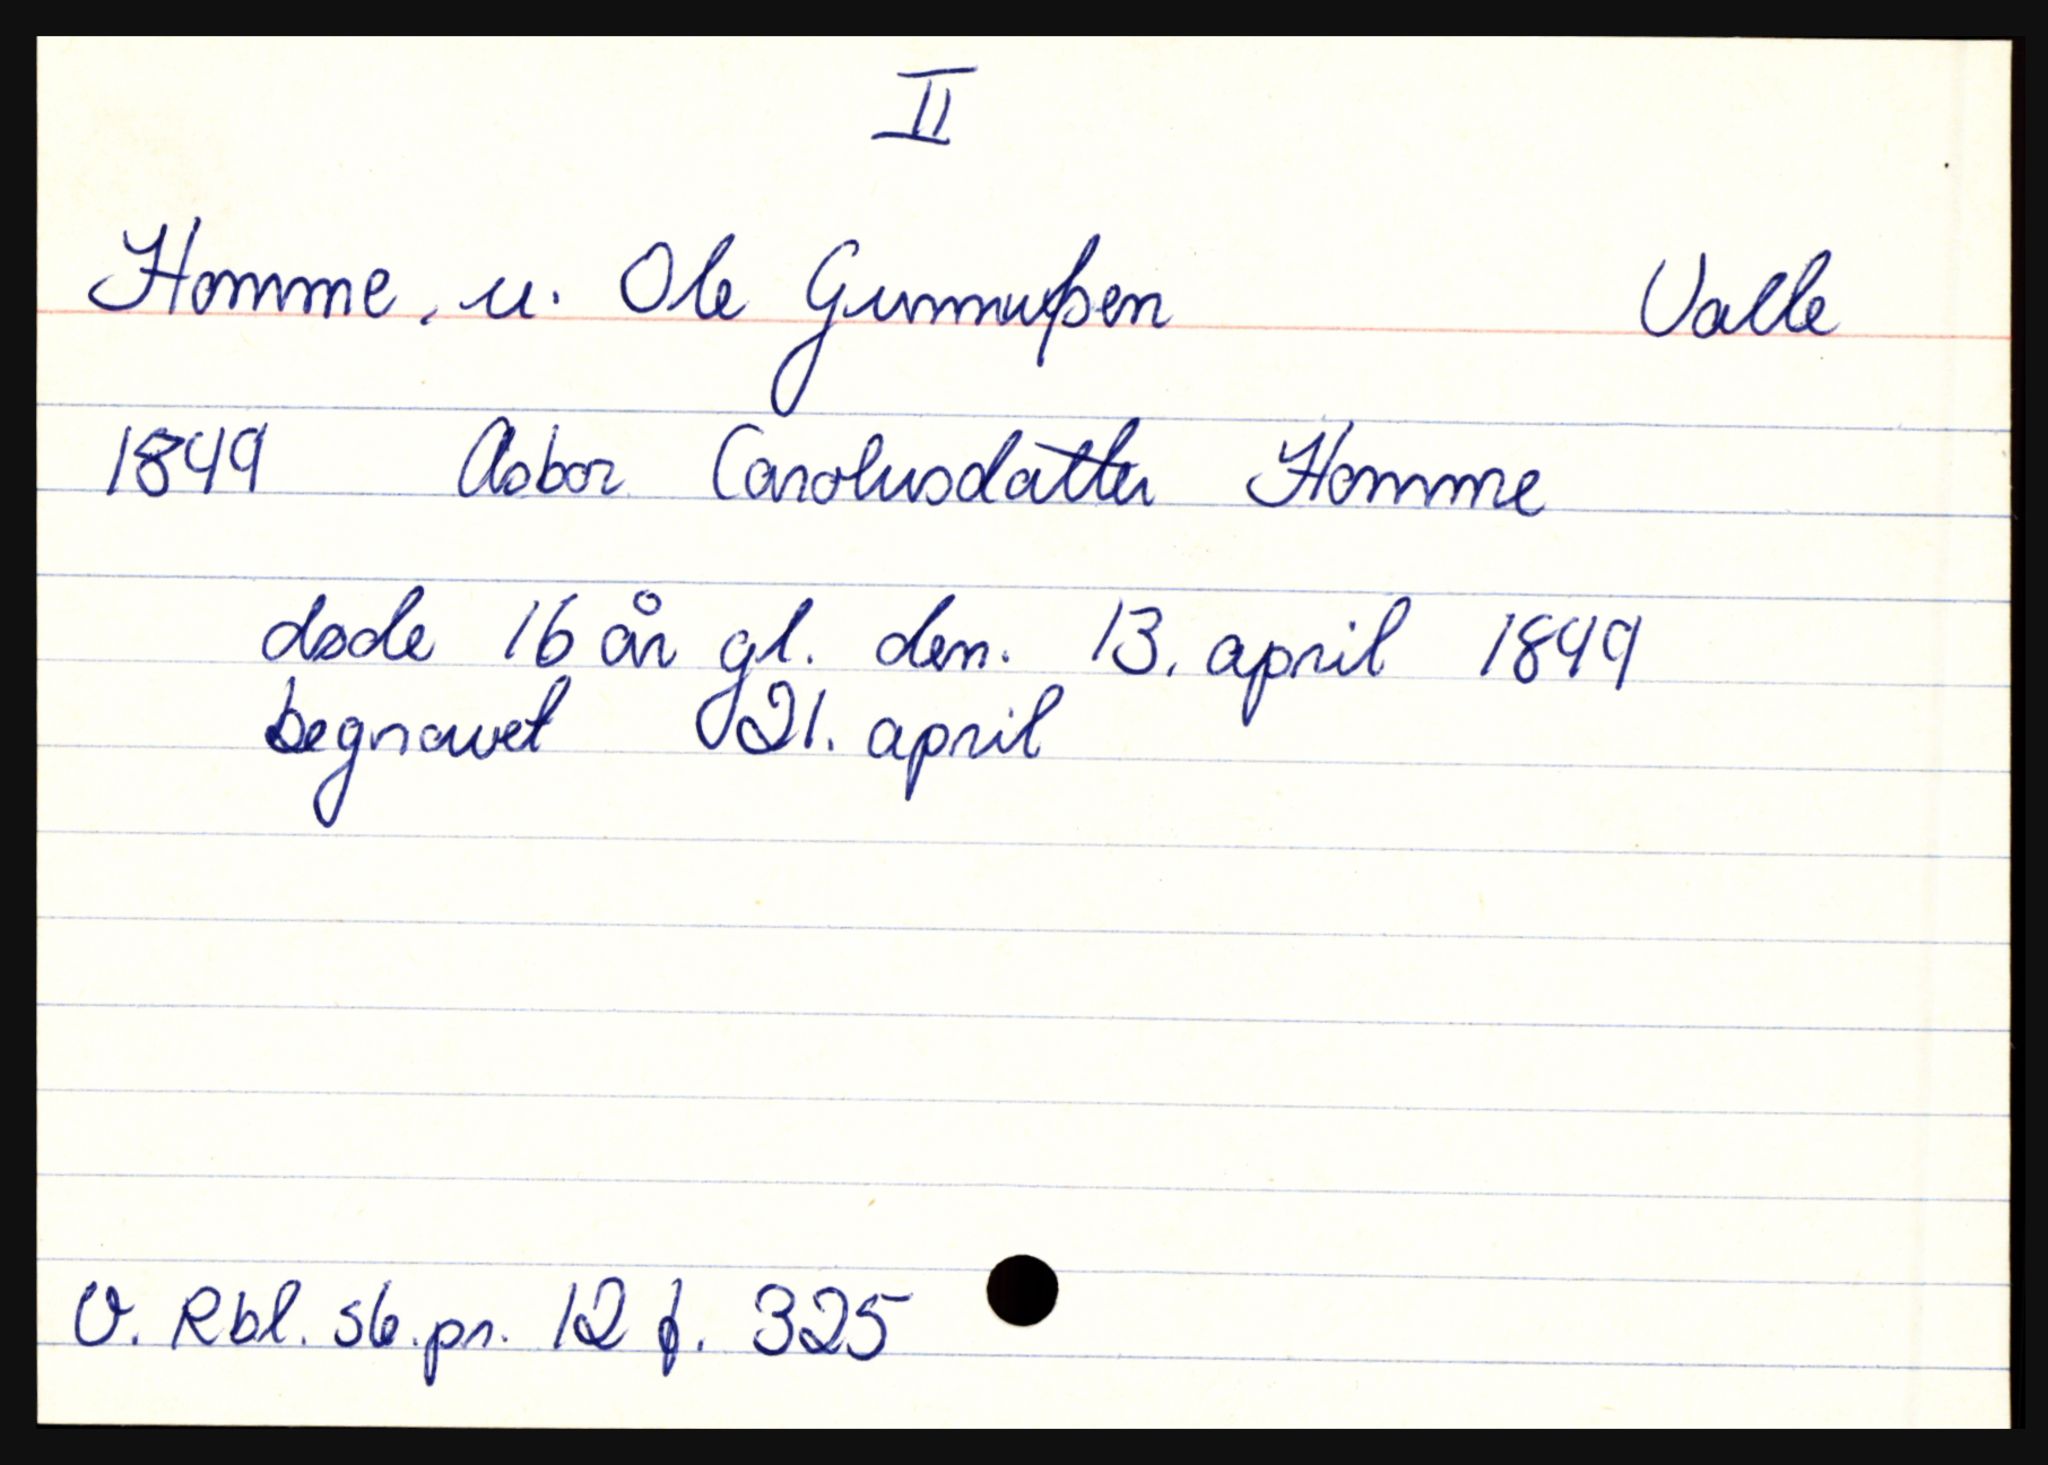 II
Homme, u. Ole Gunnußen Valle
1849 Asbor Carolusdatter Homme
døde 16 år gl. den. 13. april 1849
begravet 21. april
V. Rbl. sk. pr. 12 f. 325